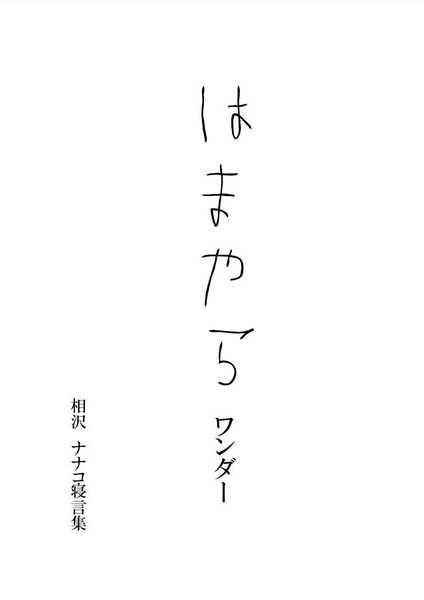 はまやらワンダー
相沢 ナナコ寝言集